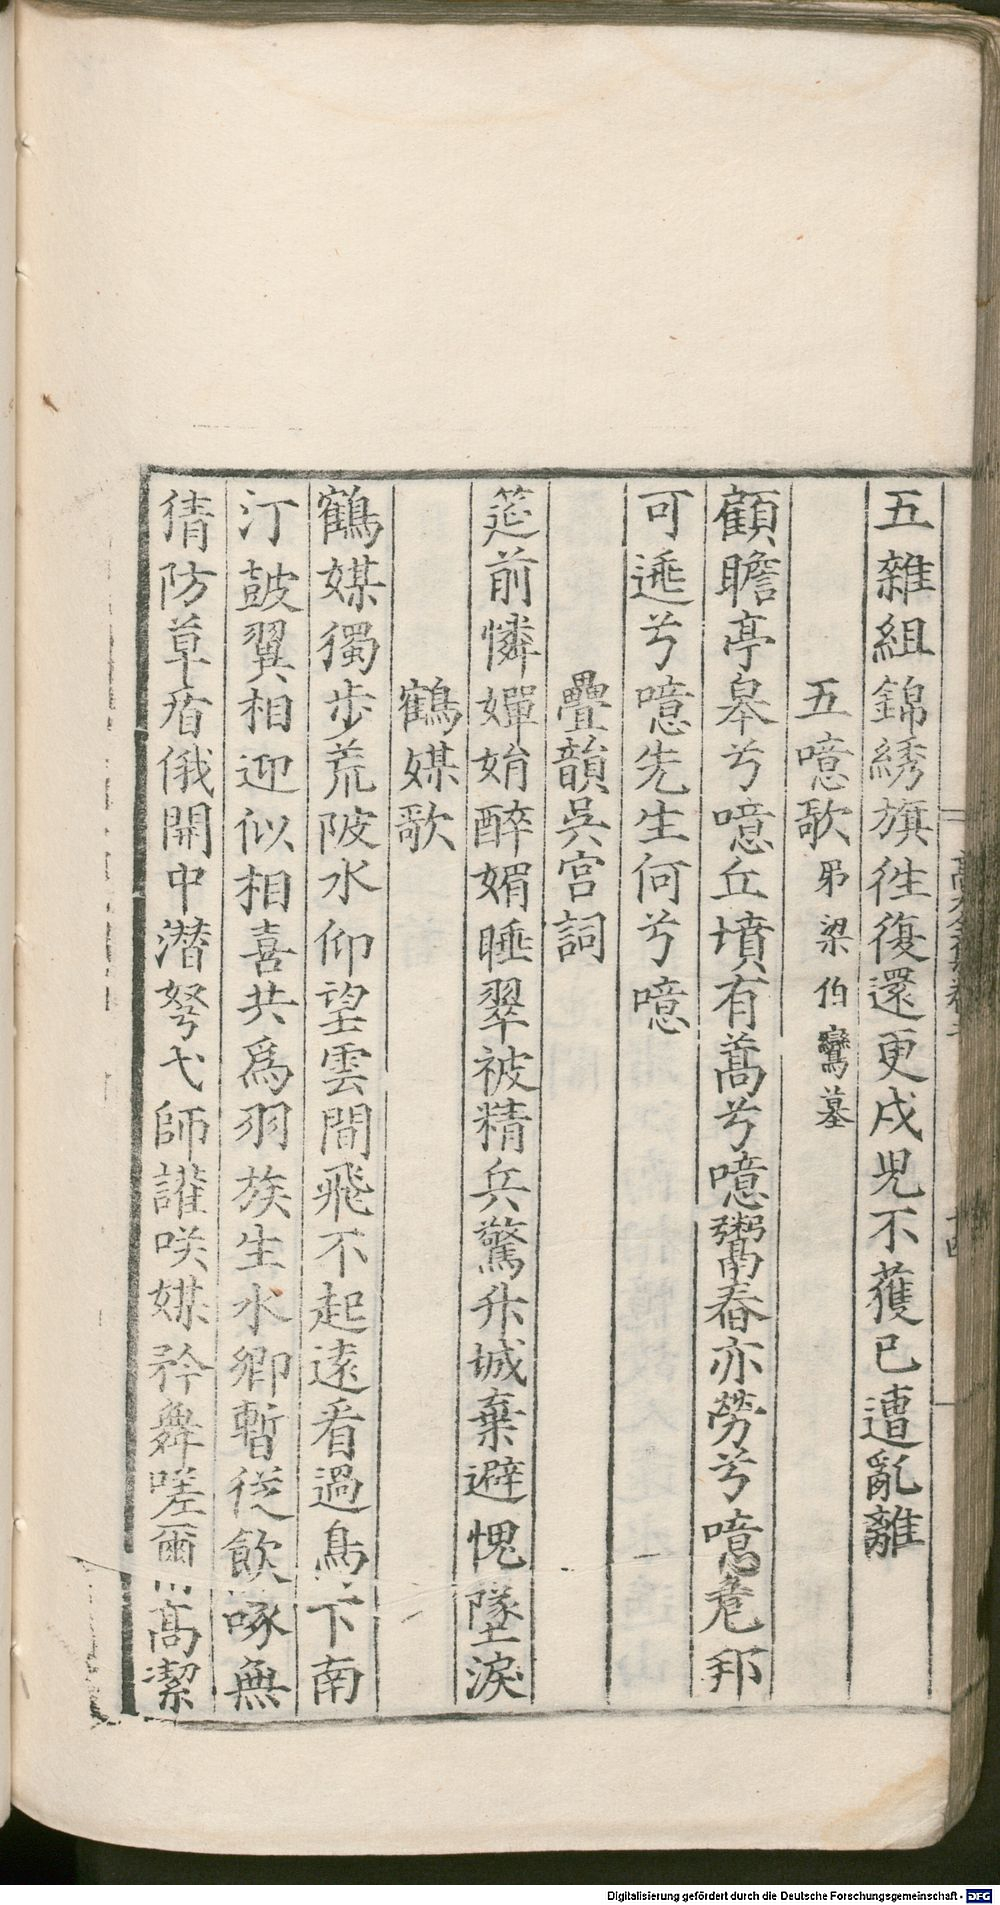 五雜組錦綉旗徃復還更戍児不獲已遭亂離
五噫歌 弔梁伯鸞墓
顧瞻亭皋兮噫丘墳有蒿兮噫鬻舂亦勞兮噫危邦
可遁兮噫先生何兮噫
疊韻吳宮詞
筵前憐嬋娟醉媚睡翠被精兵驚升城棄避愧墜淚
鶴媒歌
鶴媒獨步荒陂水仰望雲間飛不起遠看過鳥下南
汀鼓翼相迎似相喜共爲羽族生水卿暫從飲啄無
猜防草盾俄開中潜弩弋師讙咲媒矜舞嗟爾高潔
Digitalisierung gefördert durch die Deutsche Forschungsgemeinschaft - DFG